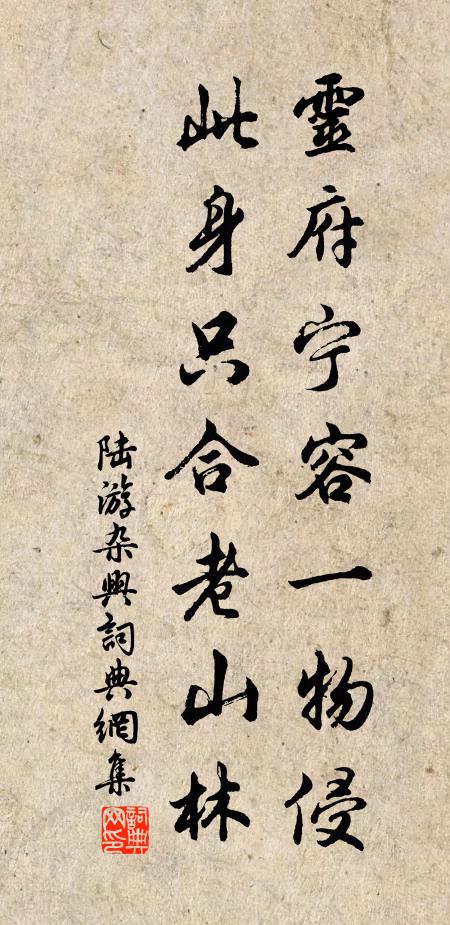 靈府宁容一物侵
此身只合老山林
陆游杂興詞典網集
詞典
网印